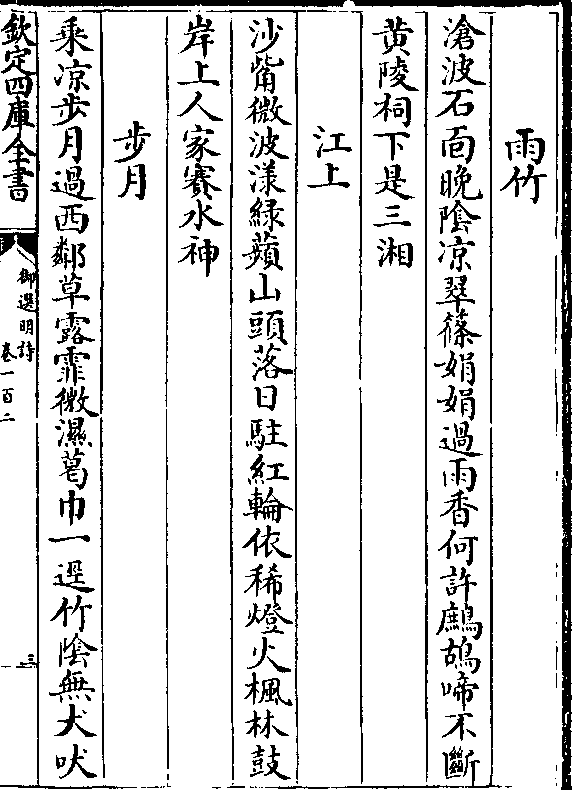 雨竹
滄波石面晩陰凉翠篠娟娟過雨香何許鷓鴣啼不斷
黄陵祠下是三湘
江上
沙觜微波漾緑蘋山頭落日駐紅輪依稀燈火楓林鼓
岸上人家賽水神
步月
乘凉步月過西鄰草露霏微濕葛巾一逕竹陰無犬吠
欽定四庫全書
御選明詩
卷一百二
三